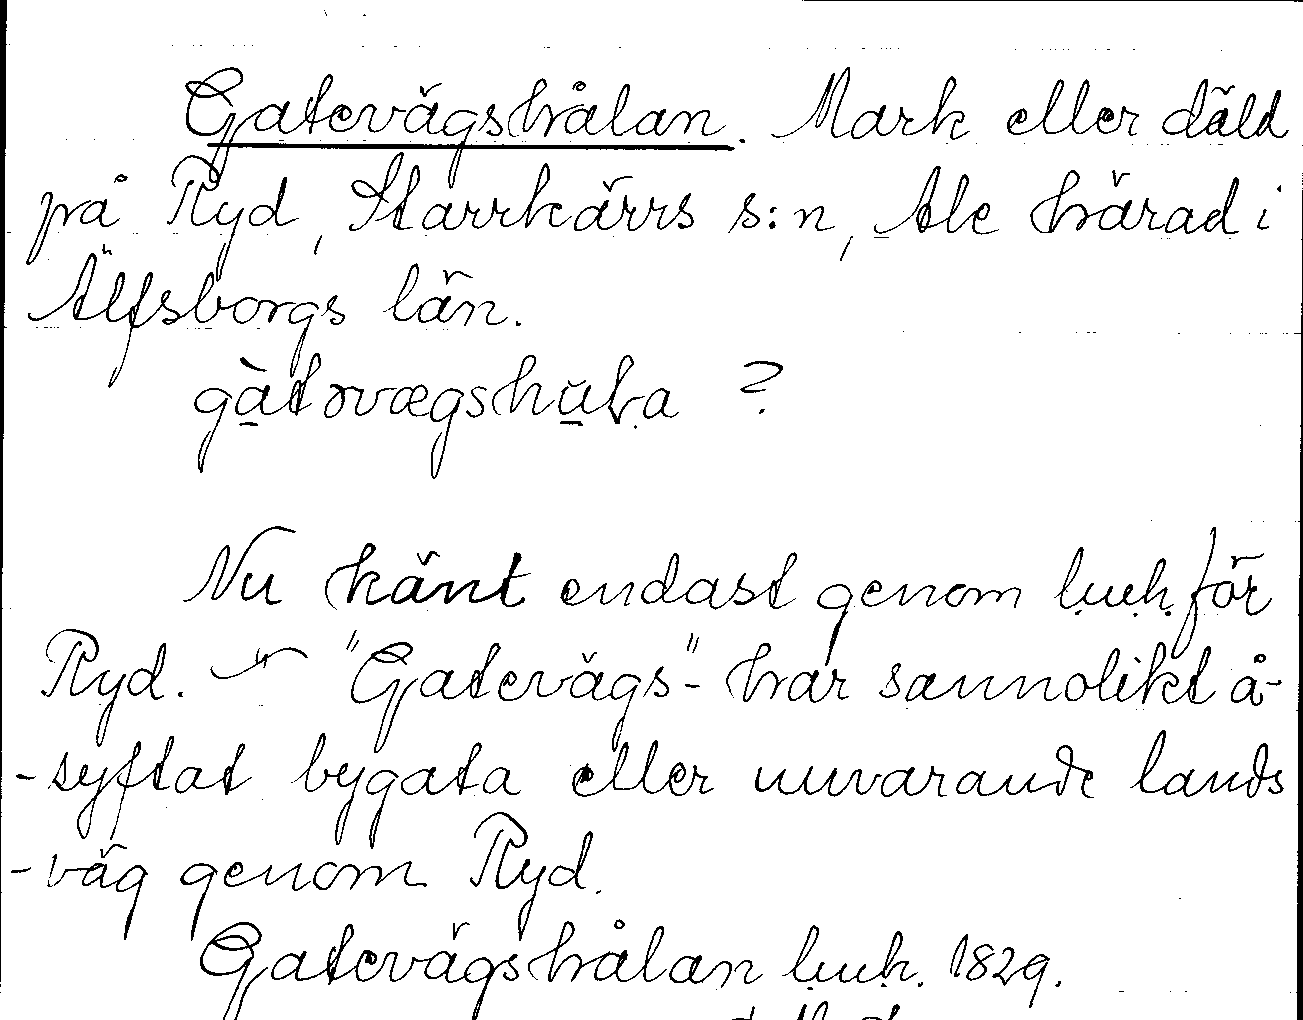 Gatevägshålan. Mark eller däld
på Ryd, Starrkärrs s:n, Ale härad i
Älfsborgs län.
?
Nu känt endast genom l.u.h. för
Ryd. — "Gatevägs"- har sannolikt å-
-syftat bygata eller nuvarande lands
-väg genom Ryd.
Gatevägshålan l.u.h. 1829.